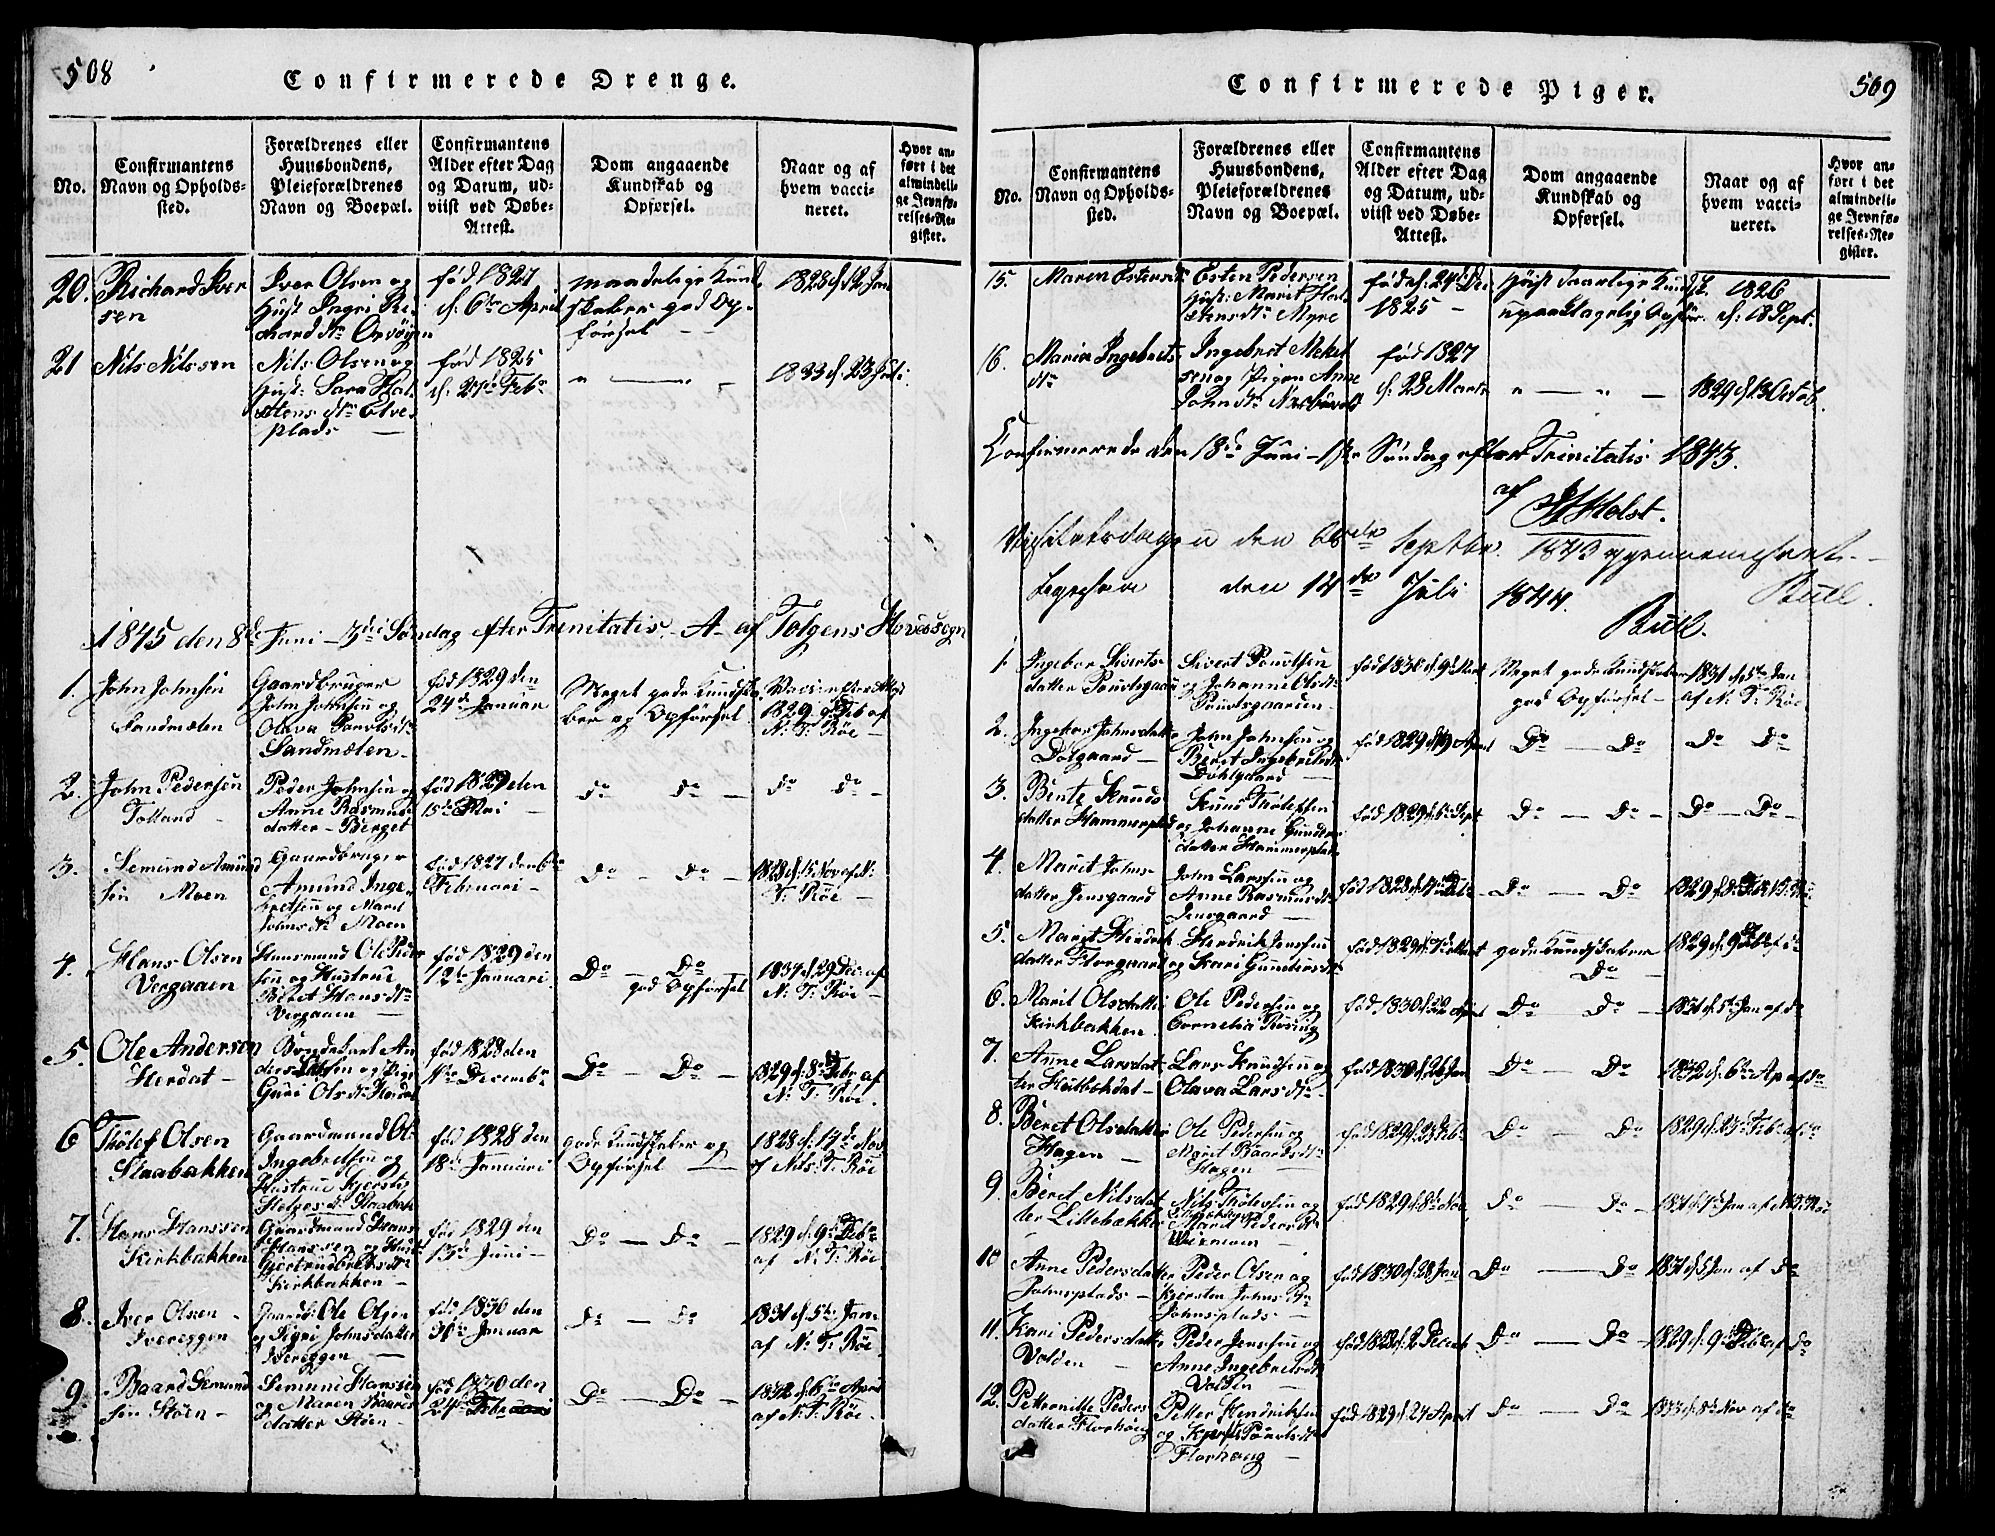 508
Confirmerede Drenge.
No.
Confirmantens
Navn og Opholds-
sted.
Forældrenes eller
Huusbondens,
Pleieforældrenes
Navn og Boepæl.
Confirmantens
Alder efter Dag
og Datum, ud-
viist ved Døbe-
Attest.
Dom angaaende
Kundskab og
Opførsel.
Naar og af
hvem vacci-
neret.
Hvor an-
ført i det
almindeli-
ge Jevnfø-
relses-Re-
gister.
20. Richard Iver
sen
Iver Olsen og
Hust. Ingri Ri-
chard Dr
født 1827
d. 6te April
maadelige Kund
skaber god Op-
førsel
1828 d. 12 Jan
21 Nils Nilssen
Nils Olsen og
Hust: Sara Hal-
stens Dr Elve-
plads
født 1825
d. 27de Feb
1833 d. 23 Juli
1845 den 8de Juni 3die Søndag efter Trinitatis. A. af Tolgens Hovedsogn
1. John Johnsen
Sandmælen
Gaardbruger
John Johnsen og
Olava Povels Dr
Sandmælen
født 1829 den
24de Januar
Meget gode Kundska
ber og Opførsel
1829 9 Feb af
N: T: Røe
2. John Pedersen
Tolland
Peder Johnsen og
Anne Rasmus
datter - Berget
født 1829 den
15de Mai
do do
do do
3. Semund Amund
sen Moen
Gaardbruger
Amund Inge-
bretsen og Marit
Johns Dr Moen
født 1827 den 6te
Februari
do - do
1828 d. 15 Nov af N:
T: Røe
4. Hans Olsen
Vergaaen
Huusmand Ole Peder
sen og Hustrue
Beret Hans Dr
Vergaaen
født 1829 den
12de Januari
Do - Do
god Opførsel
1834 d. 29 Dec af
N: T: Røe
5. Ole Andersen
Herdal
Gúri Ols Dr Herdal
født 1828 den
11te Decembr
Do - Do
1829 d. 8de Febr af
N: T: Røe
6 Tholef Olsen
Staabakken
Gaardmand Ole
Ingebretsen og
Hustrue Kjersti
Helges Dr Staabak
født 1828 den
18de Januari
gode Kundskaber og
Opførsel
1828 d. 14de Nov
af Nils: T: Røe
7. Hans Hanssen
Kirkbakken
Gaardmand Hans
Hanssen og Hust
Kirkbakken
født 1829 den
13de Juni
Do - Do
1829 d. 9de Febr
af N: T: Røe
8. Iver Olsen
Ivereggen
Gaardb: Ole Olsen
og Sigri Johnsdatter
Ivereggen
født 1830 den
31te Januar
Do - Do
1831 d. 5te Jan
af N: T: Røe
9. Baard Semund
sen Støen
Semund Hanssen
og Maren Baards
datter Støen
født 1830 den
24de Februari
Do - Do
1832 d. 6te April
af N: T: Røe
Confirmerede Piger.
509
No.
Confirmantens
Navn og Opholds-
sted.
Forældrenes eller
Huusbondens,
Pleieforældrenes
Navn og Boepæl.
Confirmantens
Alder efter Dag
og Datum, ud-
viist ved Døbe-
Attest.
Dom angaaende
Kundskab og
Opførsel.
Naar og af
hvem vacci-
neret.
Hvor an-
ført i det
almindeli-
ge Jevnfø-
relses-Re-
gister.
15. Maren Estensdr
Esten Pedersen
Hust: Marit Hal-
stensdr Myre
født d. 24de Dec
1825
Høist daarlige Kundsk.
upaaklagelig Opfør.
1826
d. 18 Sept.
16. Marie Ingebrets
dr
Ingebret Mikel
sen og Pigen Anne
John Dr
født 1827
d. 28 Marts
1829 d. 13 Octob.
Confirmerede den 18de Juni - 1ste Søndag efter Trinitatis 1843.
af
Holst.
Visitatsdagen den Septbr. 1843 gjennemseet
Rull.
Ligesaa den 14de Juli 1844.
Rull.
1. Ingebor Siverts-
datter Povelsgaard
Sivert Povelsen
og Johanne Olsdr
Povelsgaarden
født 1830 d. 9 Mart
Meget gode Kundskaber
god Opførsel
1831 d. 5te Jan
af N: T: Røe
2. Ingebor Johnsdatter
Dølgaard
John Johnsen og
Beret Ingebretsdr
Døhlgaard
født 1829 d. 19 April
Do - Do
Do Do
3. Berte Knuds
datter Hammerplads
Knud Tholefsen
og Johanne Gunders
datter Hammerplads
født 1829 d. 6te Sept
Do - Do
Do - Do
4. Marit Johns
datter Jensgaard
John Larssen og
Anne Rasmusdr
Jensgaard
Do - Do
5. Marit Hendrik
datter Florgaard
Hendrik Jenssen
og Kari Gundersdr
gode Kundskaber
Do
6. Marit Olsdatter
Kirkbakken
Ole Pedersen og
Cornelia Røsing
født 1830 d. 22 April
Do - Do
1831 d. 5te Jan af do
7. Anne Larsdat
ter
Lars Knudsen og
Olava Lars Dr
født 1830 d. 26 Jan
Do - Do
1832 d. 6te Ap af do
8. Beret Olsdatter
Hagen
Ole Pedersen og
Marit Baards Dr
Hagen
født 1829 d. 23 Feb
Do - Do
1829 d. 23de Feb af do
9. Beret Nilsdat
ter Lillebækken
Nils Tholefsen og
Marit Peders Dr
født 1829 d. 8de Nov
Do - Do
10 Anne Pedersdatter
Johnsplads
Peder Olsen og
Kjersten Johns Dr
Johnsplads
født 1830 d. 28 Jan
Do - Do
1831 d. 5 Jan af do
11. Kari Pedersdatter
Volden
Peder Jenssen og
Anne Ingebretsdr
Volden
født 1828 d. 2 Decemb
Do - Do
1829 d. 9 Feb af do
12. Petternille Peders
datter Florhoug
Petter Hendriksen
og Povels dr
Florhaug
født 1829 d. 24 April
Do - Do
1833 d. 8de Nov af do